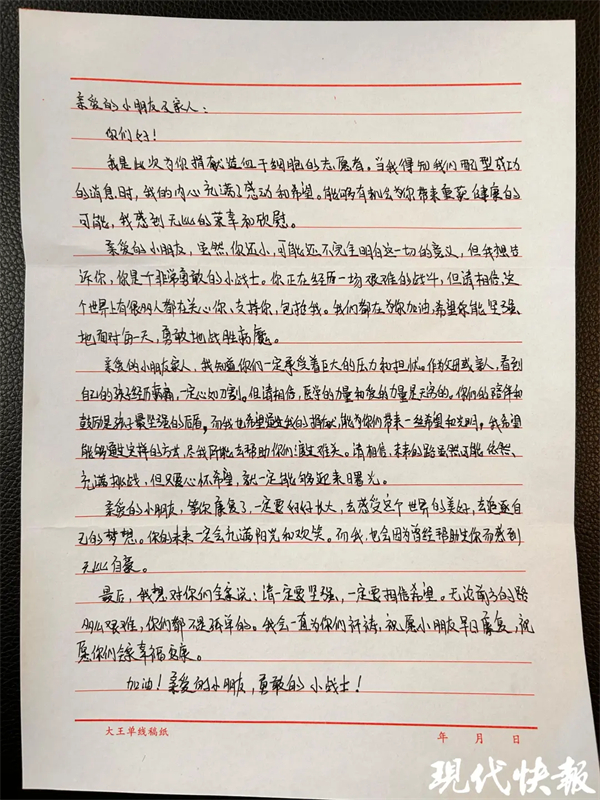 亲爱的小朋友及家人：
你们好！
我是此次为你捐献造血干细胞的志愿者。当我得知我们配型成功
的消息时，我的内心充满了感动和希望。能够有机会为你带来重获健康的
可能，我感到无比的荣幸和欣慰。
亲爱的小朋友，虽然你还小，可能还不完全明白这一切的意义，但我想告
诉你，你是个非常勇敢的小战士。你正在经历一场艰难的战斗，但请相信，这
个世界上有很多人都在关心你、支持你，包括我。我们都在为你加油，希望你能坚强
地面对每一天，勇敢地战胜病魔。
亲爱的小朋友家人，我知道你们一定承受着巨大的压力和担忧。作为父母或亲人，看到
自己的孩子经历病痛，一定心如刀割。但请相信，医学的力量和爱的力量是无穷的。你们的陪伴和
鼓励是孩子最坚强的后盾。而我也希望通过我的捐献，能为你们带来一丝希望和光明。我希望
能够通过这样的方式，尽我所能去帮助你们渡过难关。请相信，未来的路虽然可能依然
充满挑战，但只要心怀希望，就一定能够迎来曙光。
亲爱的小朋友，等你康复了，一定要好好长大，去感受这个世界的美好，去追逐自
己的梦想。你的未来一定会充满阳光和欢笑。而我，也会因为曾经帮助过你而感到
无比自豪。
最后，我想对你们全家说：请一定要坚强，一定要相信希望。无论前方的路
多么艰难，你们都不是孤单的。我会一直为你们祈祷，祝愿小朋友早日康复，祝
愿你们全家幸福安康。
加油！亲爱的小朋友，勇敢的小战士！
大王单线稿纸
年 月 日
现代快报